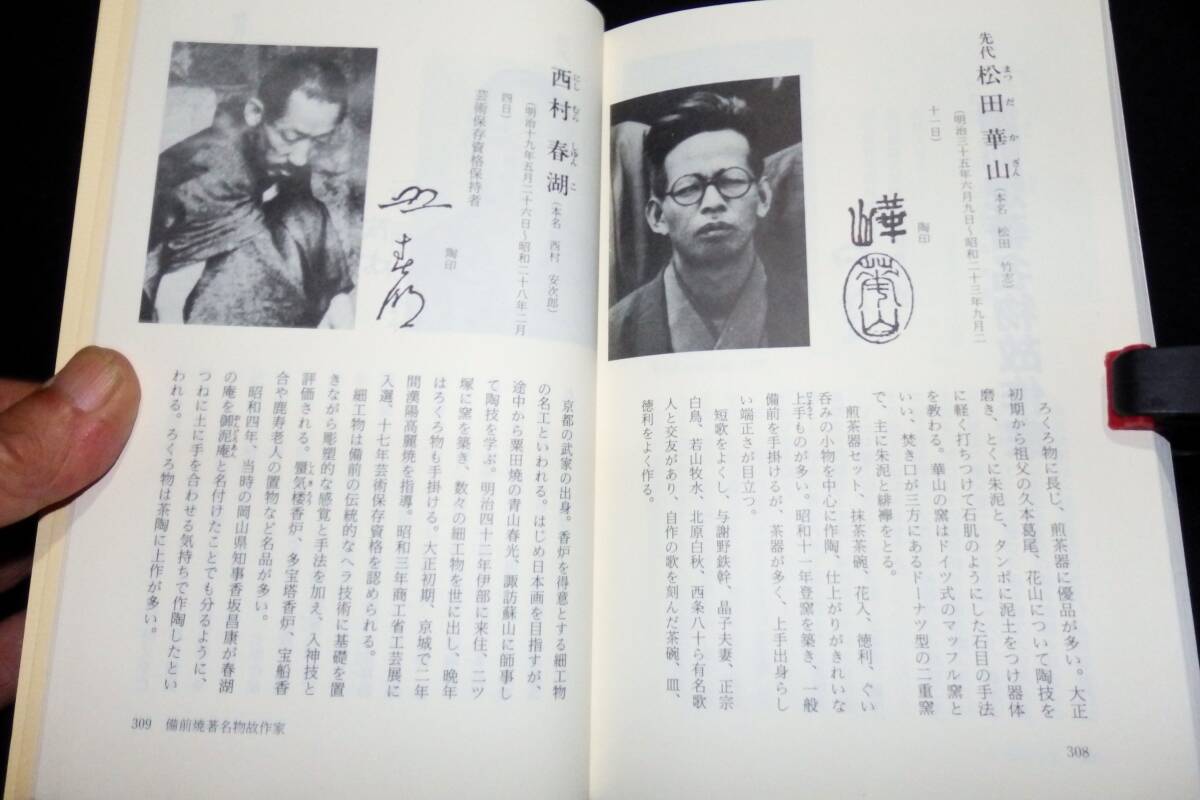 先代 松田華山（本名 松田 竹志）
まつだかざん
（明治三十五年六月九日～昭和二十三年九月二
十一日）
陶印
ろくろ物に長じ、煎茶器に優品が多い。大正
初期から祖父の久本葛尾、花山について陶技を
磨き、とくに朱泥と、タンポに泥土をつけ器体
に軽く打ちつけて石肌のようにした石目の手法
を教わる。華山の窯はドイツ式のマッフル窯と
いい、焚き口が三方にあるドーナツ型の二重窯
で、主に朱泥と緋襷をとる。
煎茶器セット、抹茶茶碗、花入、徳利、ぐい
呑みの小物を中心に作陶、仕上がりがきれいな
上手ものが多い。昭和十一年登窯を築き、一般
備前を手掛けるが、茶器が多く、上手出身らし
い端正さが目立つ。
短歌をよくし、与謝野鉄幹、晶子夫妻、正宗
白鳥、若山牧水、北原白秋、西条八十ら有名歌
人と交友があり、自作の歌を刻んだ茶碗、皿、
徳利をよく作る。
308
西村春湖（本名 西村 安次郎）
にしむらしゅんこ
（明治十九年五月二十六日～昭和二十八年二月
四日）
芸術保存資格保持者
陶印
京都の武家の出身。香炉を得意とする細工物
の名工といわれる。はじめ日本画を目指すが、
途中から粟田焼の青山春光、諏訪蘇山に師事し
て陶技を学ぶ。明治四十二年伊部に来住、二ツ
塚に窯を築き、数々の細工物を世に出し、晩年
はろくろ物も手掛ける。大正初期、京城で二年
間漢陽高麗焼を指導。昭和三年商工省工芸展に
入選、十七年芸術保存資格を認められる。
細工物は備前の伝統的なヘラ技術に基礎を置
きながら彫塑的な感覚と手法を加え、入神技と
評価される。蜃気楼香炉、多宝塔香炉、宝船香
合や鹿寿老人の置物など名品が多い。
昭和四年、当時の岡山県知事香坂昌康が春湖
の庵を御泥庵と名付けたことでも分るように、
つねに土に手を合わせる気持ちで作陶したとい
われる。ろくろ物は茶陶に上作が多い。
309 備前焼著名物故作家